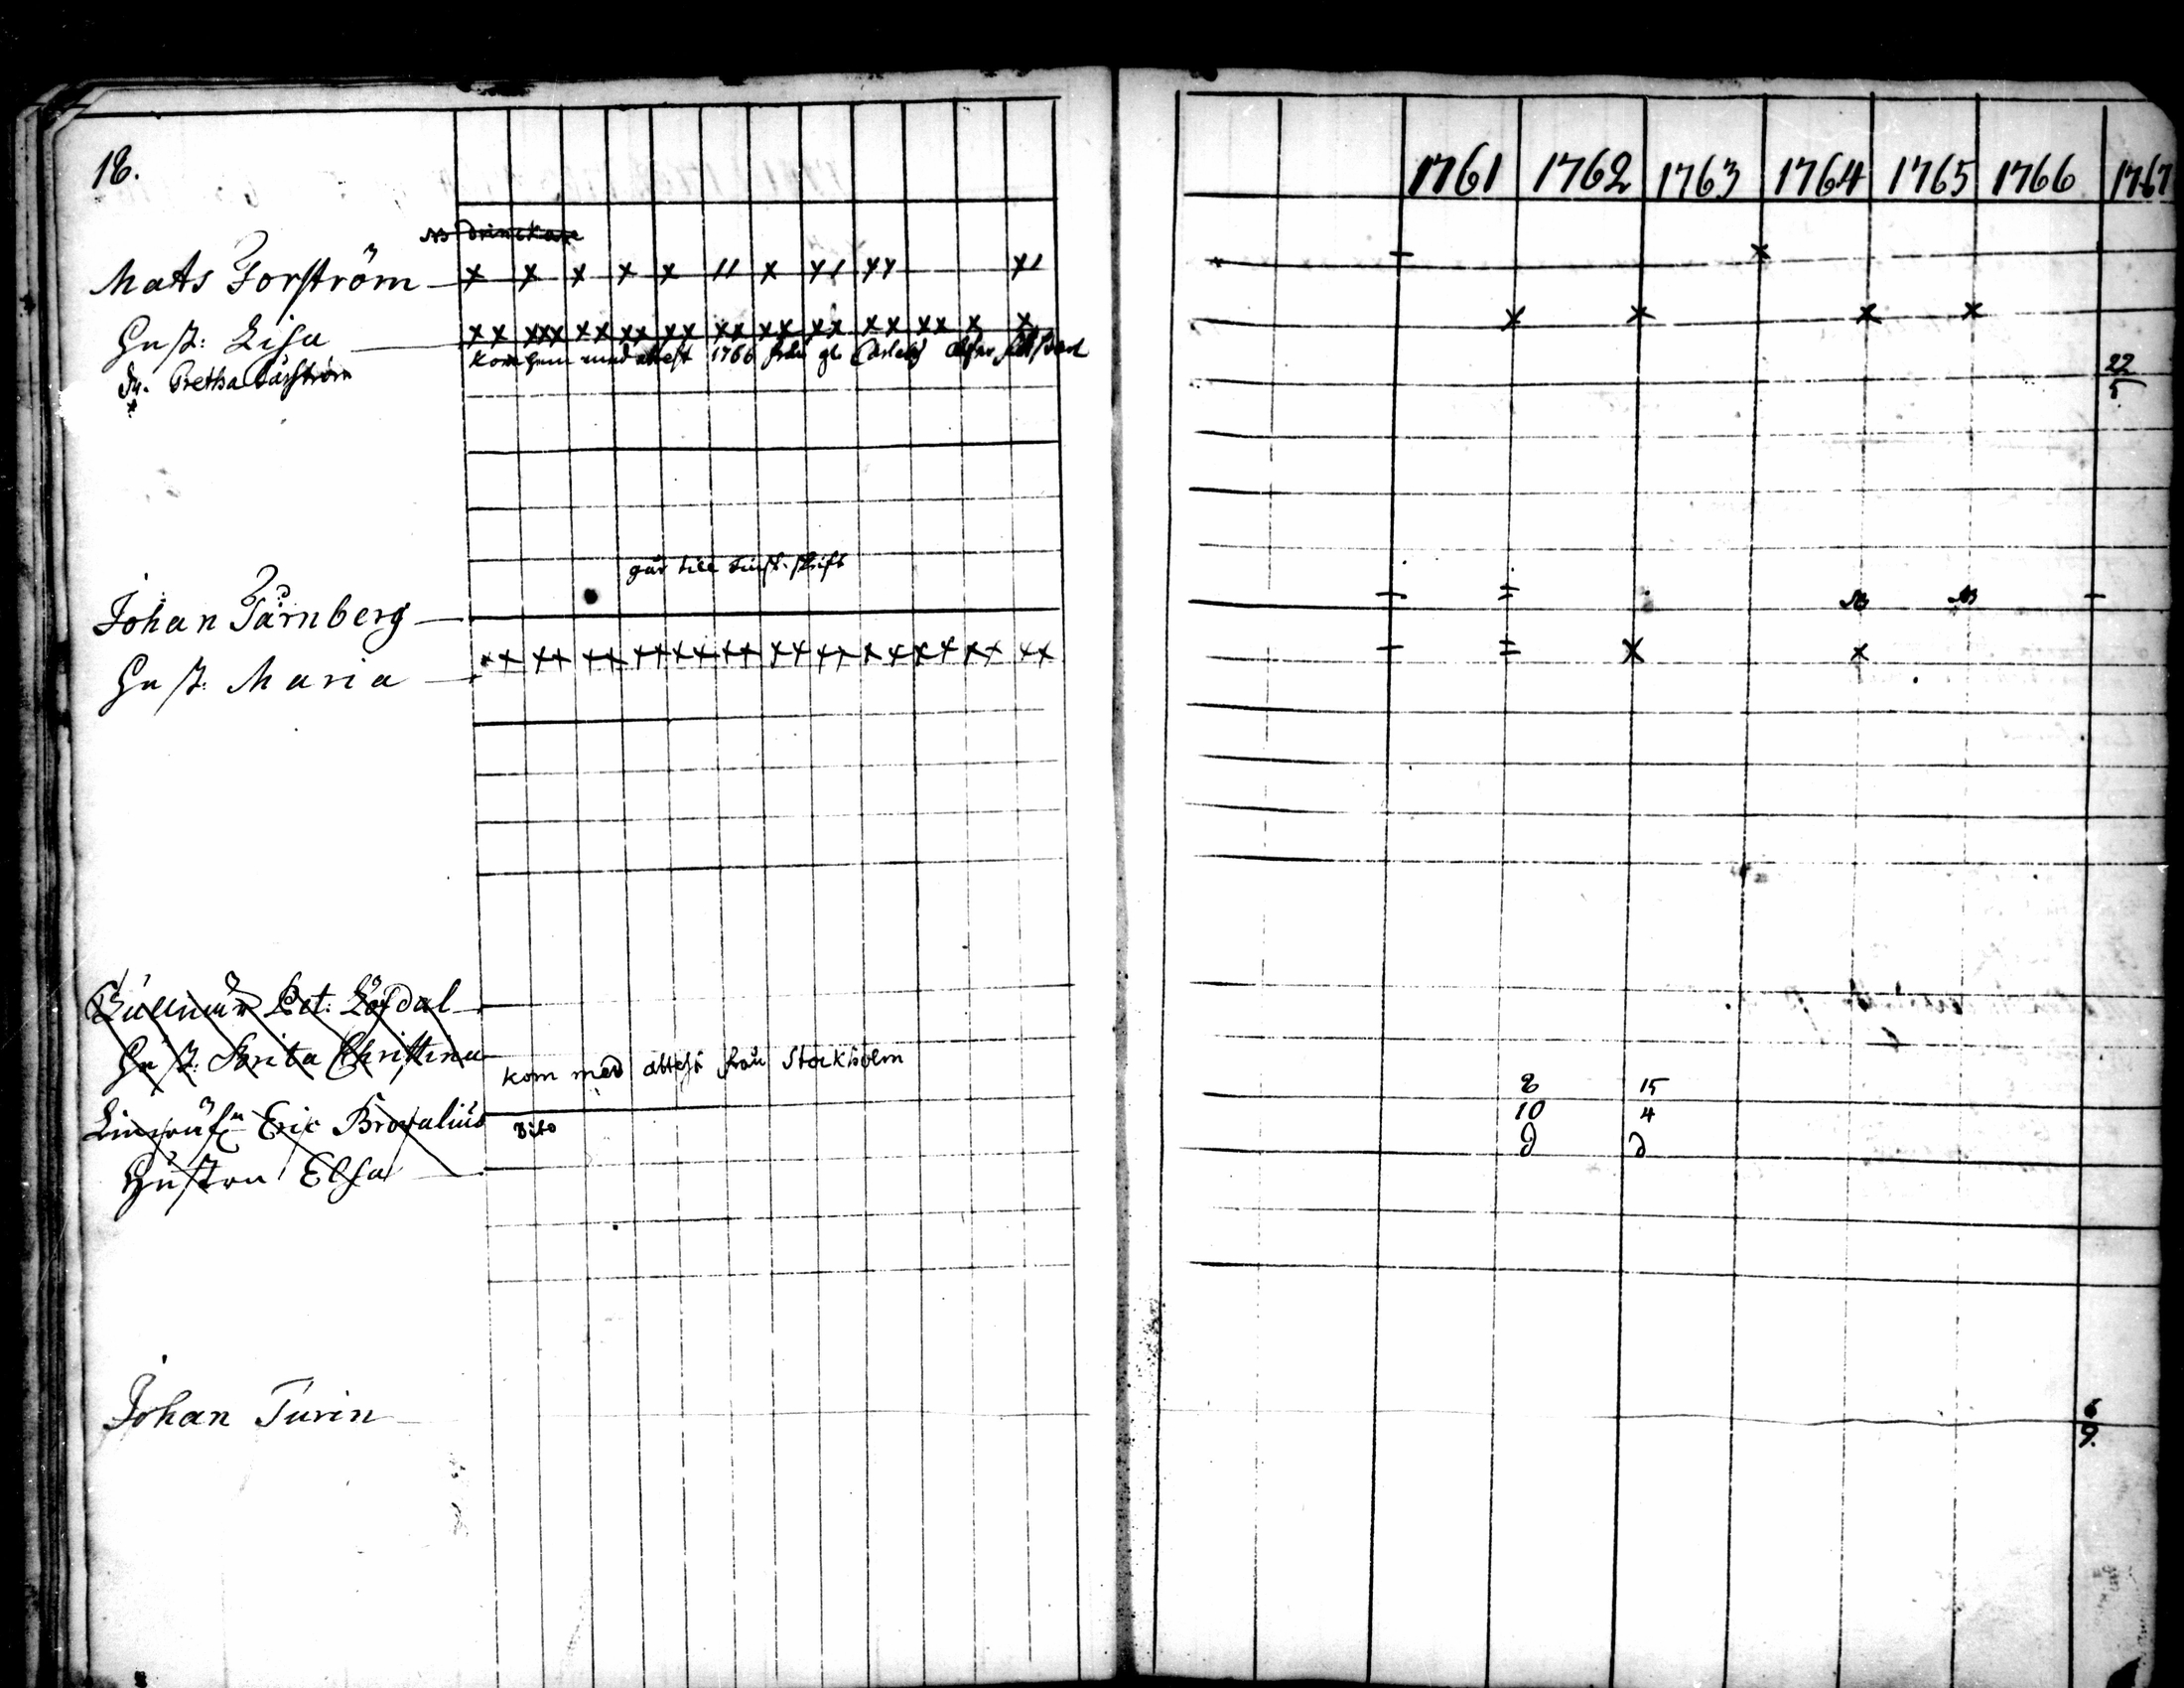 18.
1761 1762 1763 1764 1765 1766 1767
NB drinckare
Mats Forström x x x x x 11 x x1 xx x1
x
Hust: Lisa xx xxx xx xx xx xx xx xx xx xx x x
x x x x
kom hem med attest 1766 från gl Carleby
Pretha
22
5
går till
Johan Tärnberg
NB NB
Hust: Maria xx xx xx xx xx xx xx xx xx xx xx xx
x x
Pet: Löfdal
Hust: Brita Christina
kom med attest från Stockholm
8 15
Eric Brovalius dito
10 4
Hustru Elsa
Johan Turin
6
9.